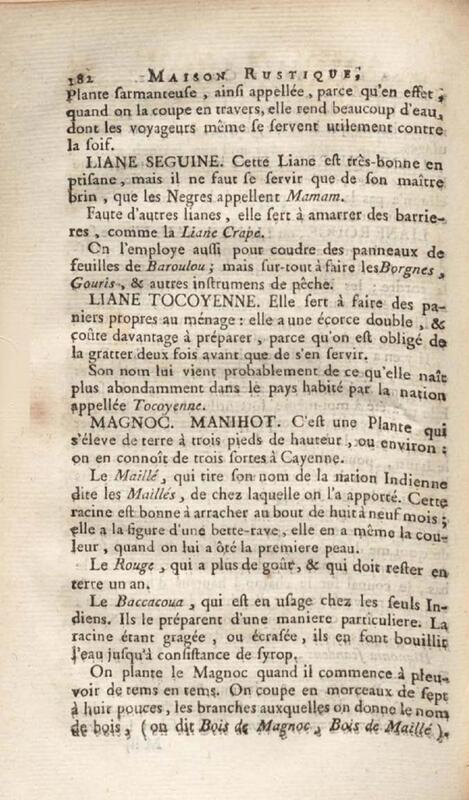 182 MAISON RUSTIQUE,
Plante sarmanteuse, ainsi appellée, parce qu'en effet,
quand on la coupe en travers, elle rend beaucoup d'eau,
dont les voyageurs même se servent utilement contre
la soif.
LIANE SEGUINE. Cette Liane est très-bonne en
ptisane, mais il ne faut se servir que de son maître
brin, que les Negres appellent Mamam.
Faute d'autres lianes, elle sert à amarrer des barrie-
res, comme la Liane Crape.
On l'employe aussi pour coudre des panneaux de
feuilles de Baroulou; mais sur-tout à faire les Borgnes,
Gouris, & autres instrumens de pêche.
LIANE TOCOYENNE. Elle sert à faire des pa-
niers propres au ménage: elle a une écorce double, &
coûte davantage à préparer, parce qu'on est obligé de
la gratter deux fois avant que de s'en servir.
Son nom lui vient probablement de ce qu'elle naît
plus abondamment dans le pays habité par la nation
appellée Tocoyenne.
MAGNOC. MANIHOT. C'est une Plante qui
s'éleve de terre à trois pieds de hauteur, ou environ:
on en connoît de trois sortes à Cayenne.
Le Maillé, qui tire son nom de la nation Indienne
dite les Maillés, de chez laquelle on l'a apporté. Cette
racine est bonne à arracher au bout de huit à neuf mois;
elle a la figure d'une bette-rave, elle en a même la cou-
leur, quand on lui a ôté la premiere peau.
Le Rouge, qui a plus de goût, & qui doit rester en
terre un an.
Le Baccacoua, qui est en usage chez les seuls In-
diens. Ils le préparent d'une maniere particuliere. La
racine étant gragée, ou écrasée, ils en font bouillir
l'eau jusqu'à consistance de syrop.
On plante le Magnoc quand il commence à pleu-
voir de tems en tems. On coupe en morceaux de sept
à huir pouces, les branches auxquelles on donne le nom
de bois, (on dit Bois de Magnoc, Bois de Maillé).